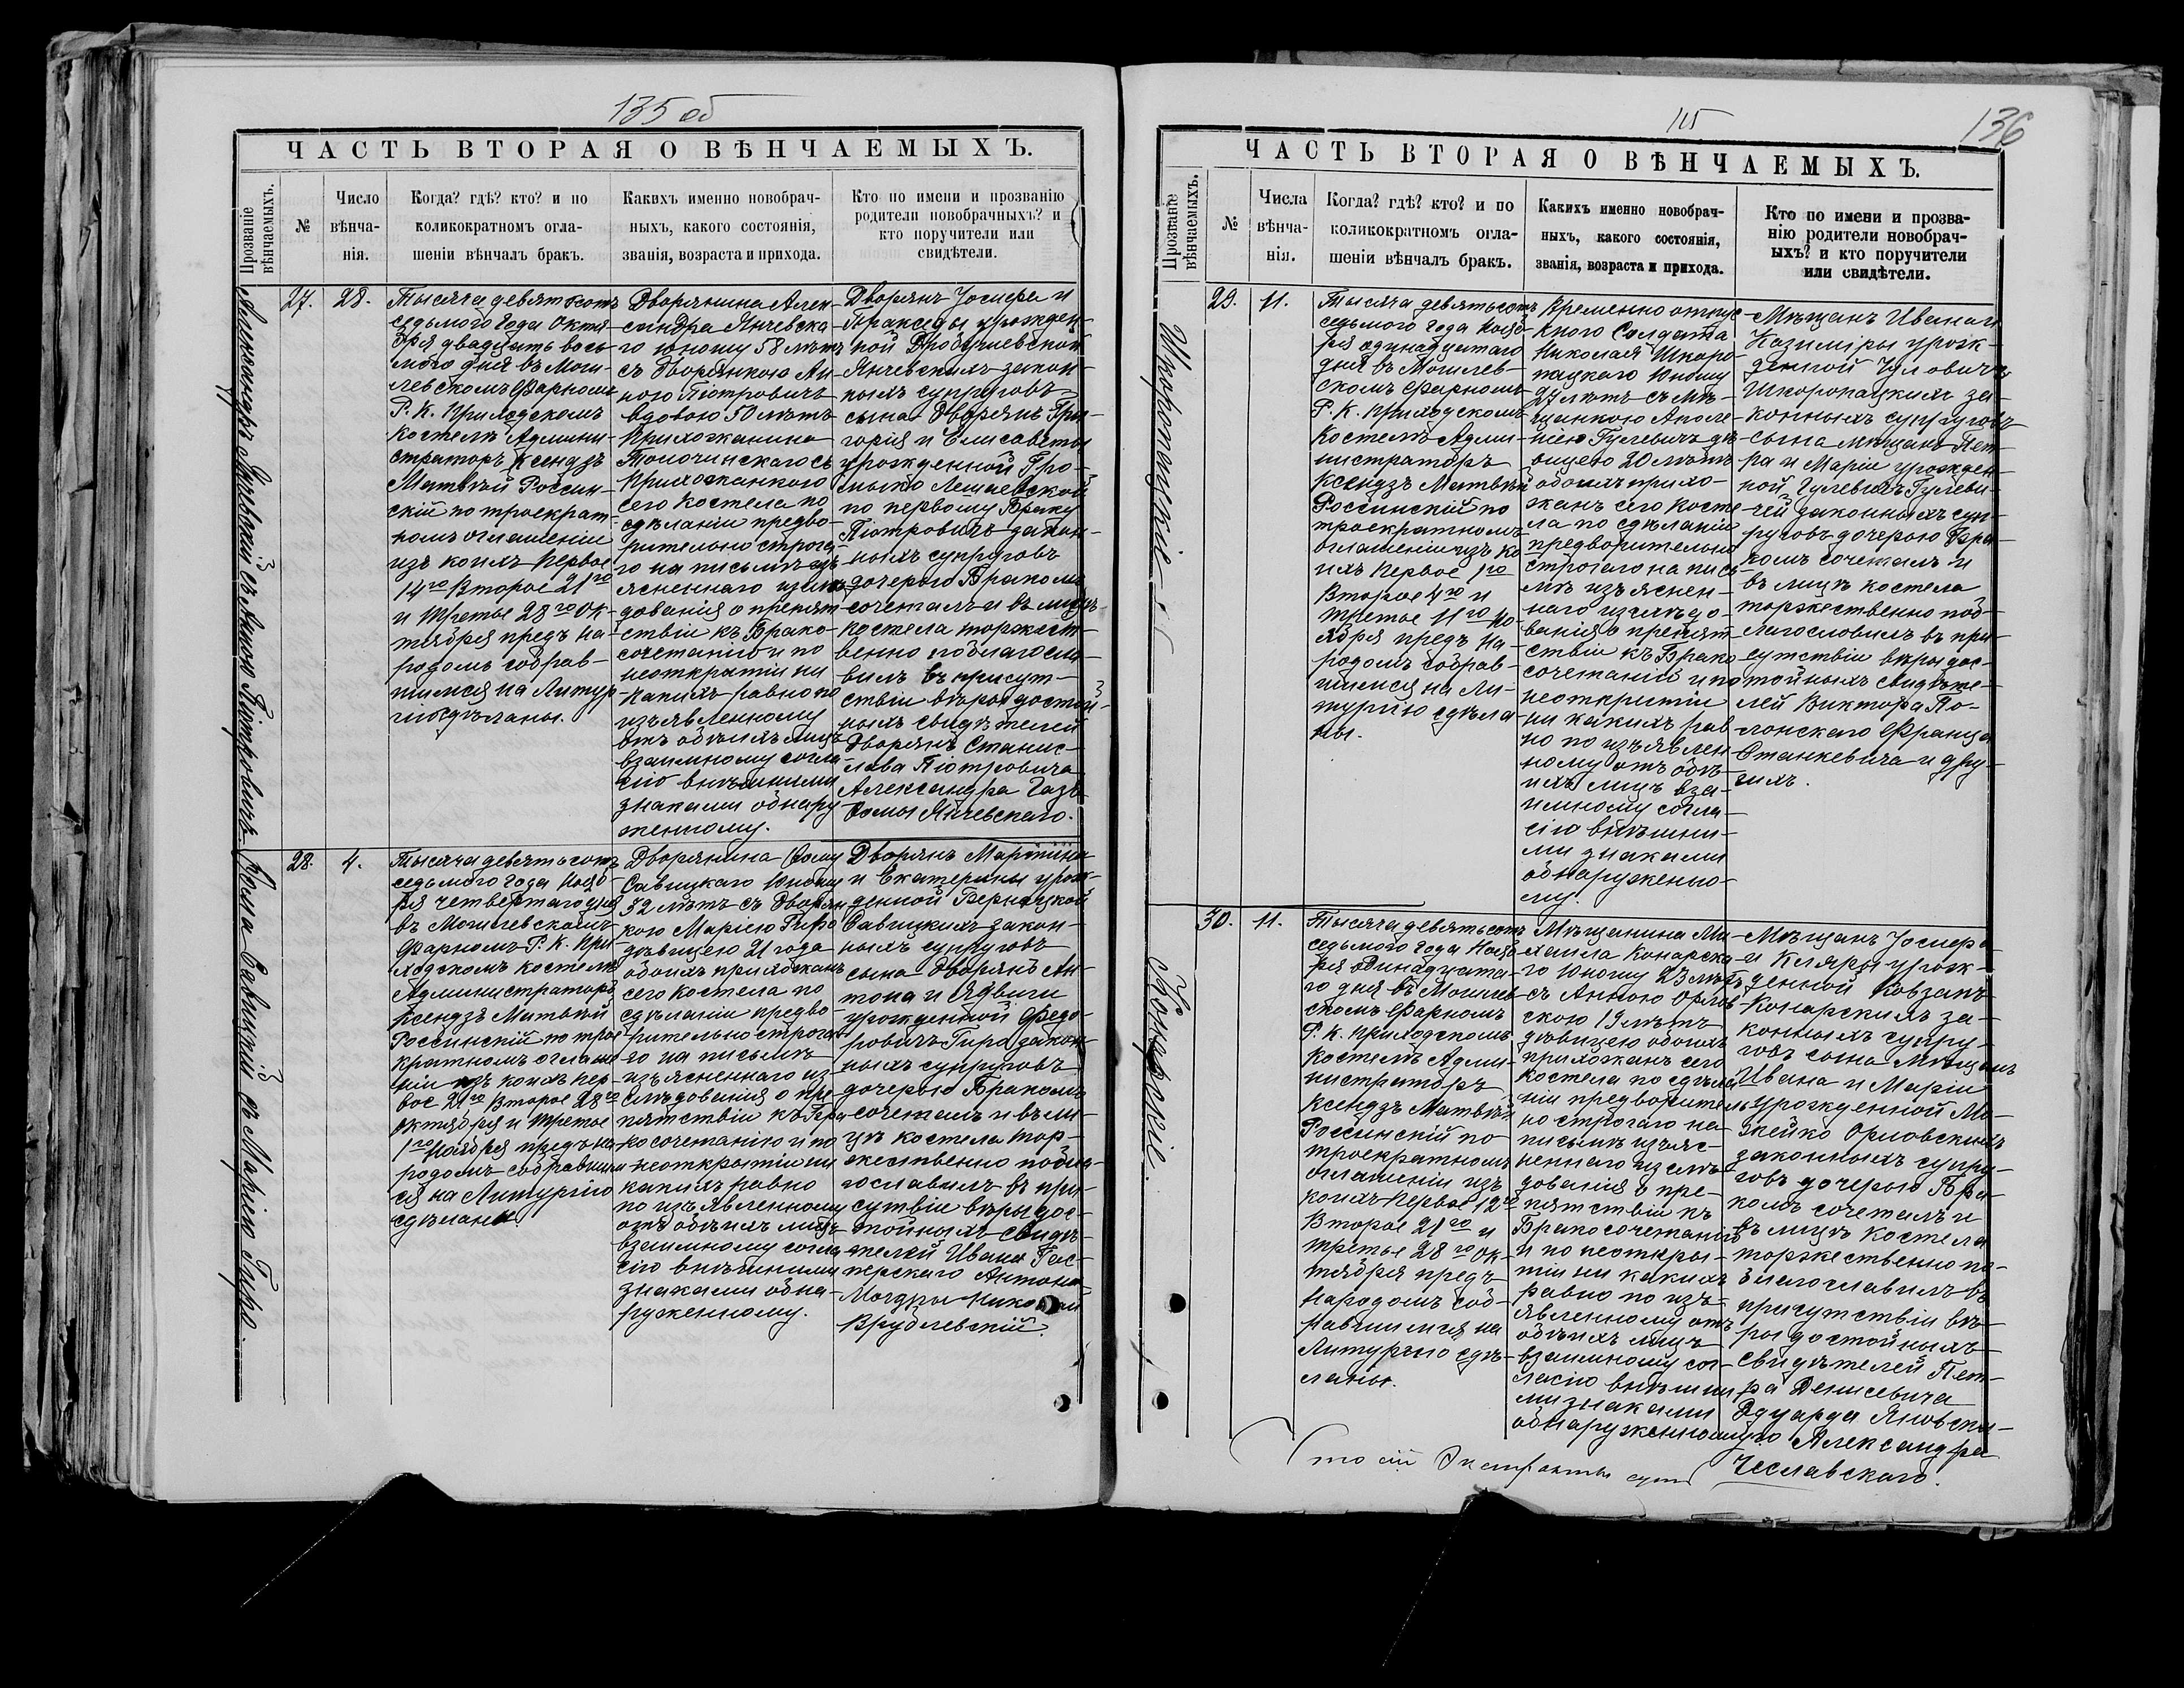 135 об
ЧАСТЬ ВТОРАЯ О ВѢНЧАЕМЫХЪ.
Прозваніе вѣнчаемыхъ.
№
Число вѣнча-
нія.
Когда? гдѣ? кто? и по
коликократномъ огла-
шеніи вѣнчалъ бракъ.
Какихъ именно новобрач-
ныхъ, какого состоянія,
званія, возраста и прихода.
Кто по имени и прозванію
родители новобрачныхъ? и
кто поручители или
свидѣтели.
Александръ Янчевскій съ Анною Піотровичъ
27.
28.
Тысяча девятьсотъ
седьмого года Октя-
бря двадцать вось-
мого дня въ Моги-
левскомъ Фарномъ
Р. К. приходскомъ
костелѣ Админи-
страторъ Ксендзъ
Матвѣй Россин-
скій по троекрат-
номъ оглашеніи
изъ коихъ первое
14го Второе 21го
и третье 28го Ок-
тября предъ на-
родомъ собрав-
шимся на Литур-
гію сдѣланы.
Дворянина Алек-
сандра Янчевска-
го юношу 58 лѣтъ
съ дворянкою Ан-
ною Піотровичъ
вдовою 50 лѣтъ
прихожанина
Толочинскаго съ
прихожанкою
сего костела по
сдѣланіи предво-
рительно строга-
го на письмѣ изъ-
ясненнаго изслѣ-
дованія о препят-
ствіи къ Брако-
сочетанію и по
неоткрытіи ни
какихъ равно по
изъявленному
отъ обѣихъ лицъ
взаимному согла-
сію внѣшними
знаками обнару
женному.
Дворянъ Іосифа и
Бракседы урожден-
ной Дробушевской
Янчевскихъ закон-
ныхъ супруговъ
сына Дворянъ Гри-
горія и Елисаветы
урожденной Гро-
мыко Лешаевской
по первому Браку
Піотровичъ закон-
ныхъ супруговъ
дочерью Бракомъ
сочеталъ и въ лицѣ
костела торжест-
венно поблагосло-
вилъ въ присут-
ствіи вѣры достой-
ныхъ свидѣтелей
Дворянъ Станис-
лава Піотровича
Александра
Янчевскаго.
Ѳома Савицкій съ Маріею Гиро.
28.
4.
Тысяча девятьсотъ
седьмого года Нояб-
ря четвертаго дня
въ Могилевскомъ
Фарномъ Р. К. при-
ходскомъ костелѣ
Администраторъ
Ксендзъ Матвѣй
Россинскій по трое
кратномъ оглаше-
ніи изъ коихъ пер-
вое 21го Второе 28го
Октября и третье
1го Ноября предъ на-
родомъ собравшим
ся на Литургію
сдѣланы
Дворянина Ѳому
Савицкаго юношу
32 лѣтъ съ дворян
кою Маріею Гиро
дѣвицею 21 года
обоихъ прихожанъ
сего костела по
сдѣланіи предво-
рительно строга-
го на письмѣ
изъясненнаго из-
слѣдованія о пре-
пятствіи къ Бра
косочетанію и по
неоткрытіи ни
какихъ равно
по изъявленному
отъ обѣихъ лицъ
взаимному согла
сію внѣшними
знаками обна-
руженному.
Дворянъ Мартина
и Екатерины урож-
денной Верницкой
Савицкихъ закон-
ныхъ супруговъ
сына Дворянъ Ан-
тона и Ядвиги
урожденной Федо-
ровичъ Гиро закон-
ныхъ супруговъ
дочерью Бракомъ
сочеталъ и въ ли-
цѣ костела тор-
жественно побла-
гославилъ въ при-
сутствіи вѣры дос-
тойныхъ свидѣ-
телей Ивана Гос-
перскаго Антона
Николай
Врублевскій.
115
136
ЧАСТЬ ВТОРАЯ О ВѢНЧАЕМЫХЪ.
Прозваніе вѣнчаемыхъ.
№
Числа вѣнча-
нія.
Когда? гдѣ? кто? и по
коликократномъ огла-
шеніи вѣнчалъ бракъ.
Какихъ именно новобрач-
ныхъ, какого состоянія,
званія, возраста и прихода.
Кто по имени и прозва-
нію родители новобрач-
ыхъ? и кто поручители
или свидѣтели.
Шкоропацкіе
29.
11.
Тысяча девятьсотъ
седьмого года Нояб-
ря одинадцатаго
дня въ Могилев-
скомъ Фарномъ
Р. К. приходскомъ
Костелѣ Адми-
нистраторъ
Ксендзъ Матвѣй
Россинскій по
троекратномъ
оглашеніи изъ ко-
ихъ первое 1го
Второе 4го и
третье 11го Но-
ября предъ на-
родомъ собрав-
шимся на Ли-
тургію сдѣла-
ны.
Временно отпус-
кного Солдата
Николая Шкоро-
пацкаго юношу
27 лѣтъ съ Мѣ-
щанкою
Гулевичъ дѣ-
вицею 20 лѣтъ
обоихъ прихо-
жанъ сего Косте-
ла по сдѣланіи
предворительно
строгаго на пись-
мѣ изъяснен-
наго изслѣдо-
ванія о препят-
ствіи къ Брако
сочетанію и по
неоткрытіи
ни какихъ рав
но по изъявлен
ному отъ обѣ-
ихъ лицъ вза-
имному согла-
сію внѣшни-
ми знаками
обнаруженно-
му.
Мѣщанъ Ивана и
Казиміры урож-
денной
Шкоропацкихъ за-
конныхъ супруговъ
сына мѣщанъ Пет-
ра и Маріи урожден-
ной Гулевичъ Гулеви-
чей законныхъ суп-
руговъ дочерью Бра-
комъ сочеталъ и
въ лицѣ костела
торжественно поб-
лагословилъ въ при-
сутствіи вѣры дос-
тойныхъ свидѣте-
лей Виктора По-
лонскаго Франца
Станкевича и дру-
гихъ.
Конарскіе.
30.
11.
Тысяча девятьсотъ
седьмого года Нояб-
ря одинадцата-
го дня въ Могилев-
скомъ Фарномъ
Р. К. приходскомъ
костелѣ Адми-
нистраторъ
Ксендзъ Матвѣй
Россинскій по
троекратномъ
оглашеніи изъ
коихъ первое
Второе 21го и
третье 28го Ок-
тября предъ
народомъ соб-
равшимся на
Литургію сдѣ-
ланы.
Мѣщанина Ми-
хаила Конарска-
го юношу 23 лѣтъ
съ Анною Орлов-
скою 19 лѣтъ
дѣвицею обоихъ
прихожанъ сего
костела по сдѣла-
ніи предворитель
но строгаго на
письмѣ изъяс-
неннаго изслѣ-
дованія о пре-
пятствіи къ
Бракосочетанію
и по неоткры-
тіи ни какихъ
равно по изъ-
явленному отъ
обѣихъ лицъ
взаимному сог-
ласію внѣшни
ми знаками
обнаруженному.
Мѣщанъ Іосифа
и Клары урож-
денной Ковзанъ
Конарскихъ за-
конныхъ супру-
говъ сына Мѣщанъ
Ивана и Маріи
урожденной Ма-
зейко Орловскихъ
законныхъ супру-
говъ дочерью Бра-
комъ сочеталъ и
въ лицѣ костела
торжественно по-
благославилъ въ
присутствіи вѣ-
ры достойныхъ
свидѣтелей Пет-
ра Денисевича
Эдуарда Яновска-
го Александра
Чеславскаго.
Что сіи Экстракты